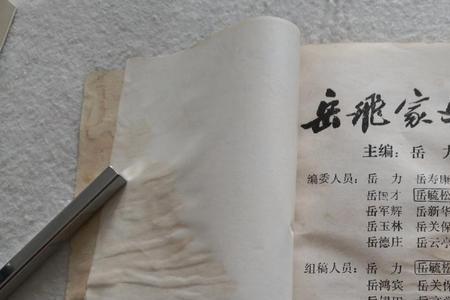 岳飛家
主编：岳 力
编委人员：岳 力 岳寿
岳国才 岳毓松
岳军辉 岳新华
岳玉林 岳关保
岳德庄 岳云亭
组稿人员：岳 力 岳毓松
岳鸿宾 岳关保